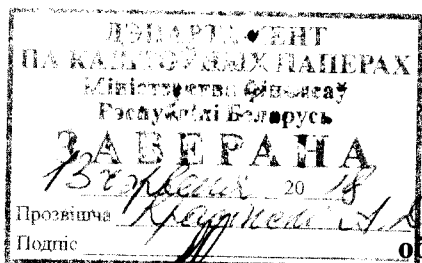 ДЭПАРТАМЕНТ
ПА КАШТОЎНЫХ ПАПЕРАХ
Міністэрства фінансаў
Рэспублікі Беларусь
ЗАВЕРАНА
13 чэрвеня 20 18
Прозвішча
Подпіс